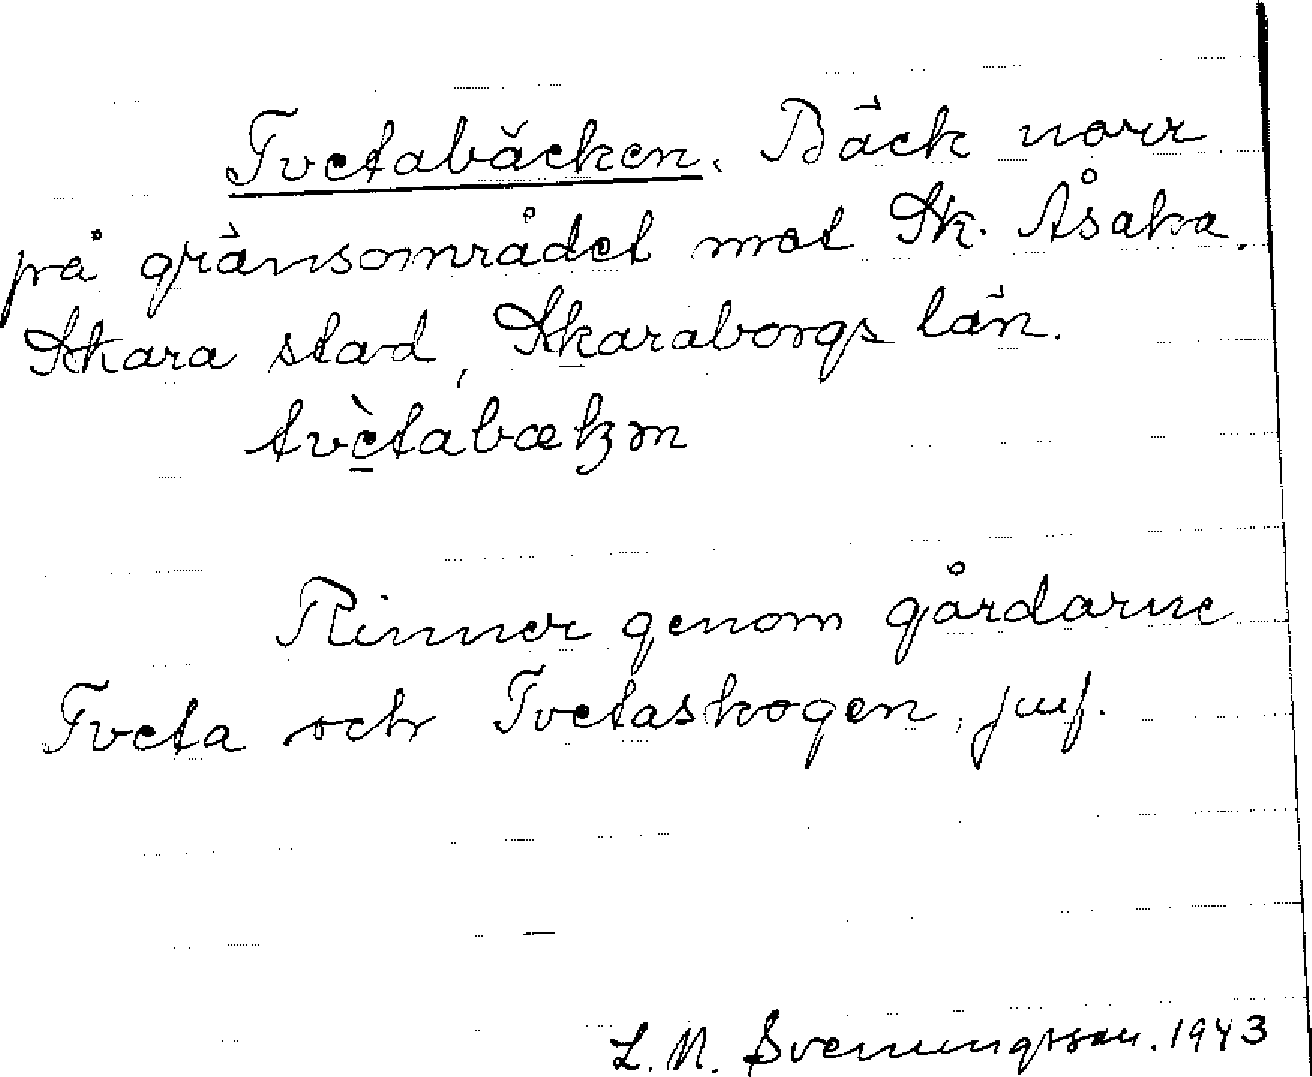 Tvetabäcken. Bäck norr
på gränsområdet mot Sk. Åsaka.
Skara stad, Skaraborgs län.
tvètabækɜn
Rinner genom gårdarne
Tveta och Tvetaskogen, juf.
L. N. Svenungsson. 1943